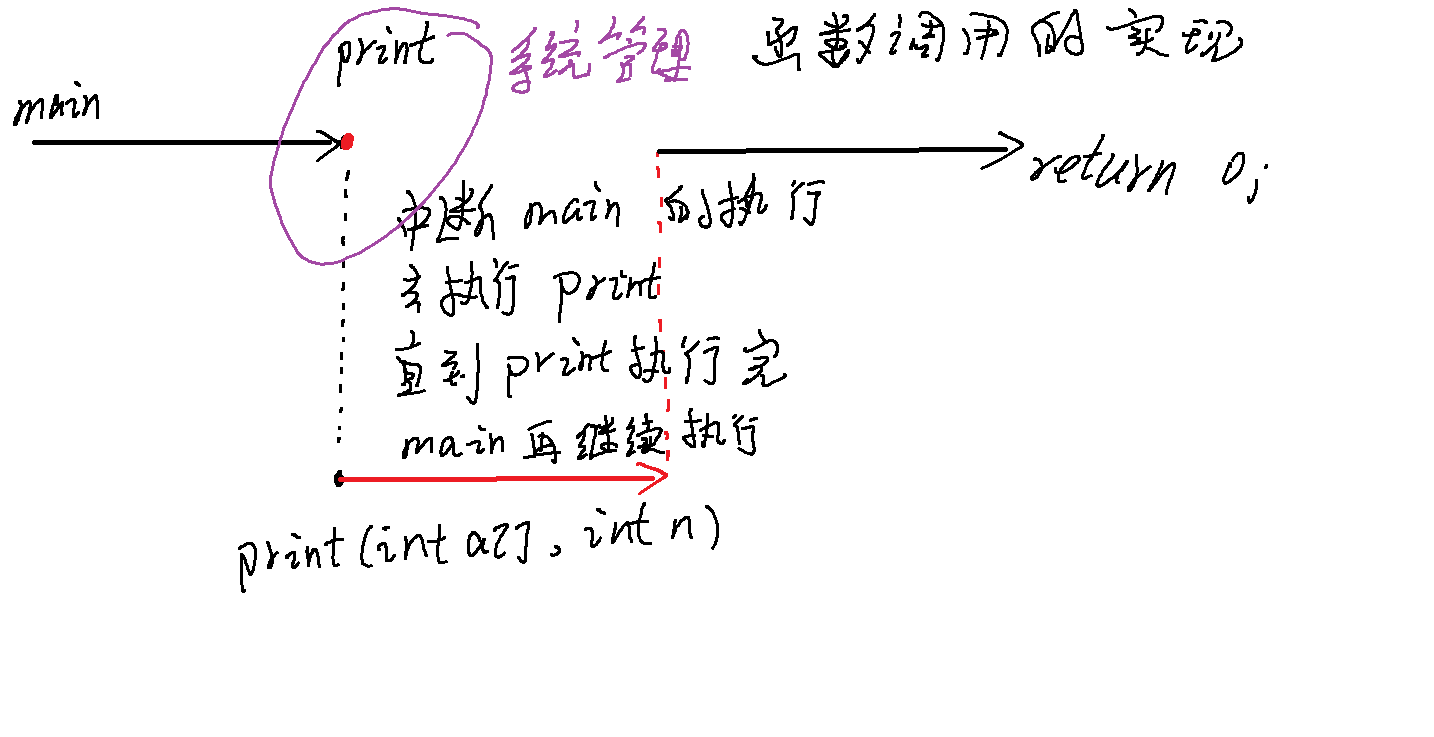 print
系统管理
函数调用的实现
main
return 0;
中断 main 的执行
去执行 print
直到 print 执行完
main 再继续执行
print(int a[], int n)